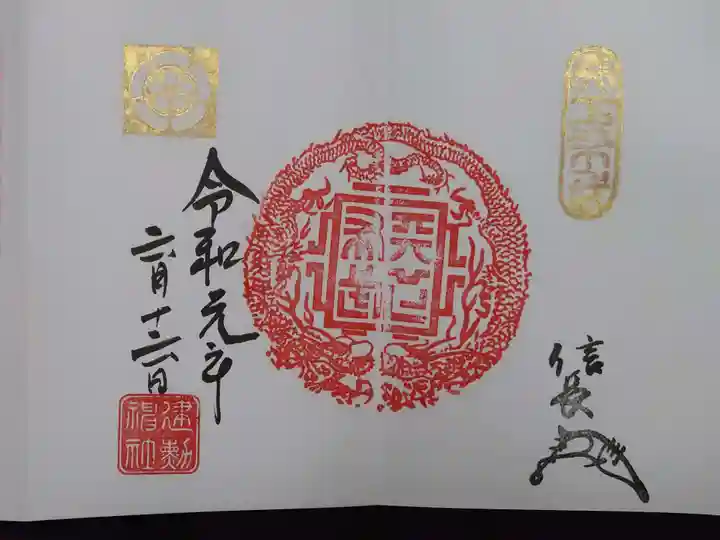 信長
天下
布武
令和元年
六月十六日
建勲
神社